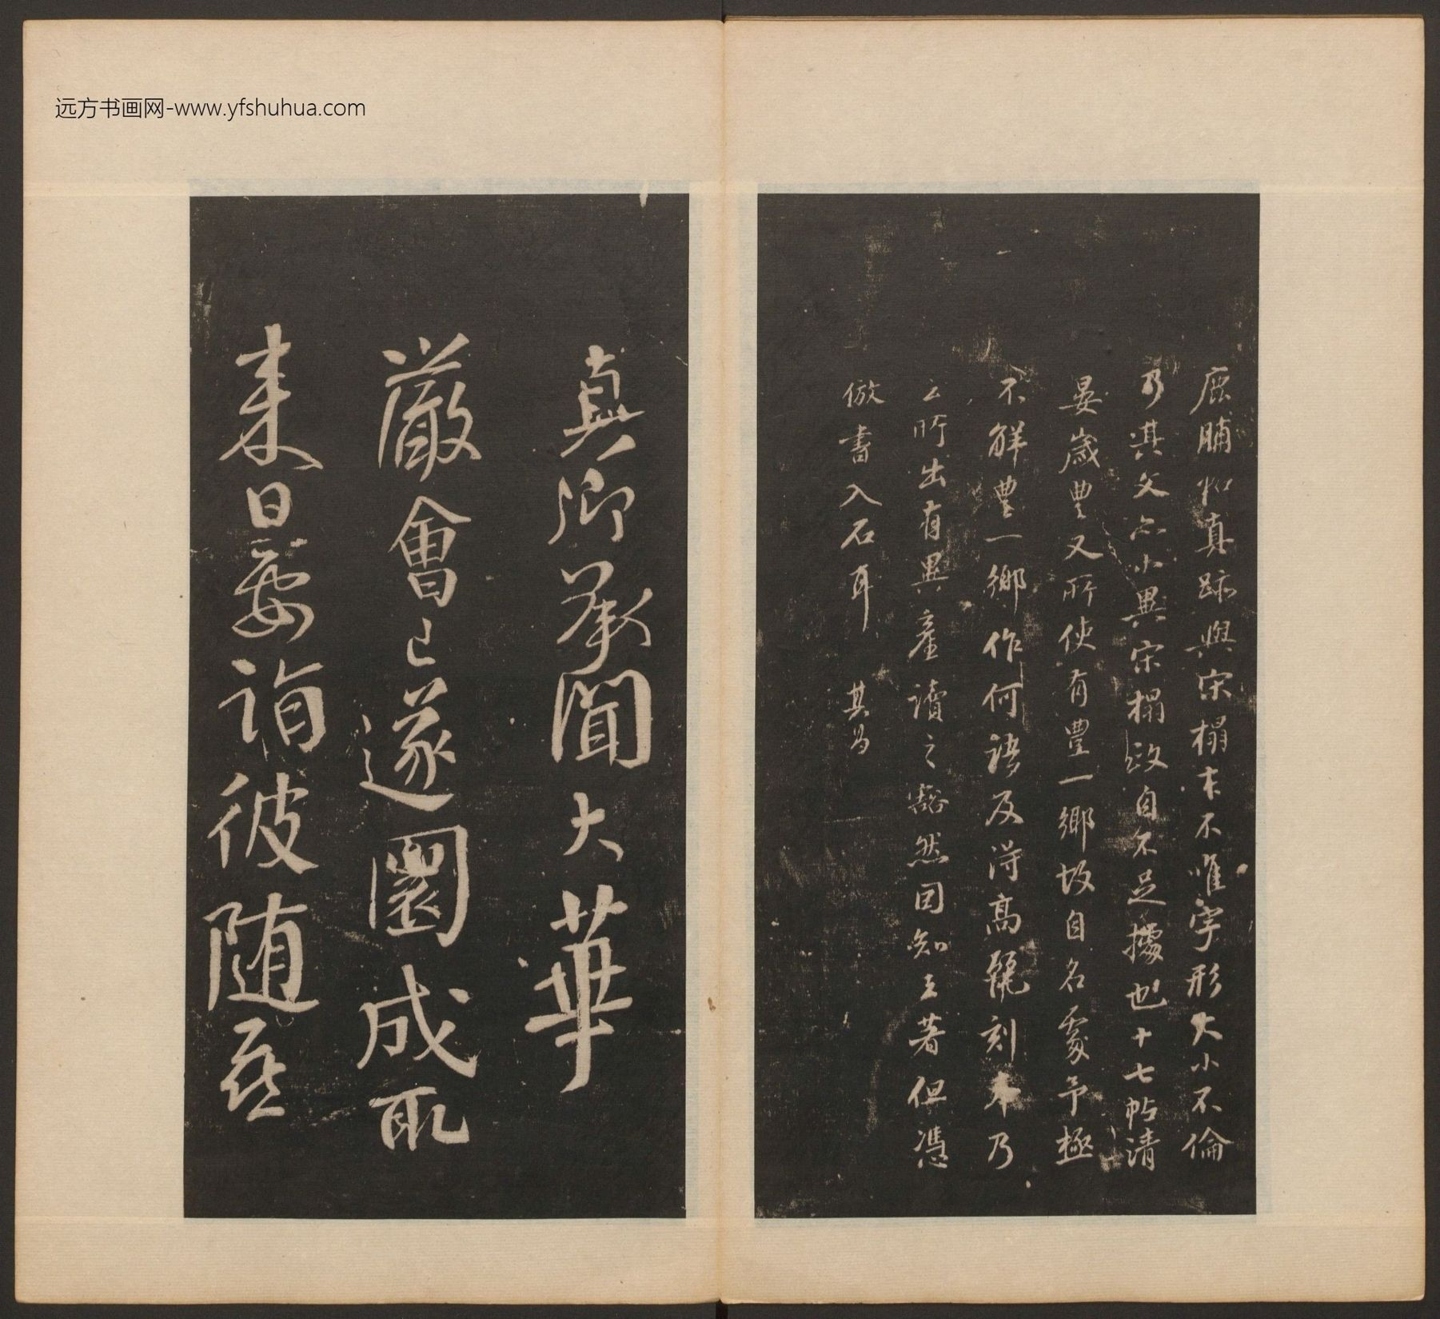 远方书画网-www.yfshuhua.com
鹿脯帖真跡與宋榻本不唯字形大小不倫
乃其文亦小異宋榻改自不足據也十七帖清
晏歲豐又所使有豐一鄉故自名處予極
不解豐一鄉作何語及得高麗刻本乃
云所出有異產讀之豁然因知王著但憑
倣書入石耳 其昌
真卿承聞大華
嚴會已遂圜成取
来日要詣彼随喜